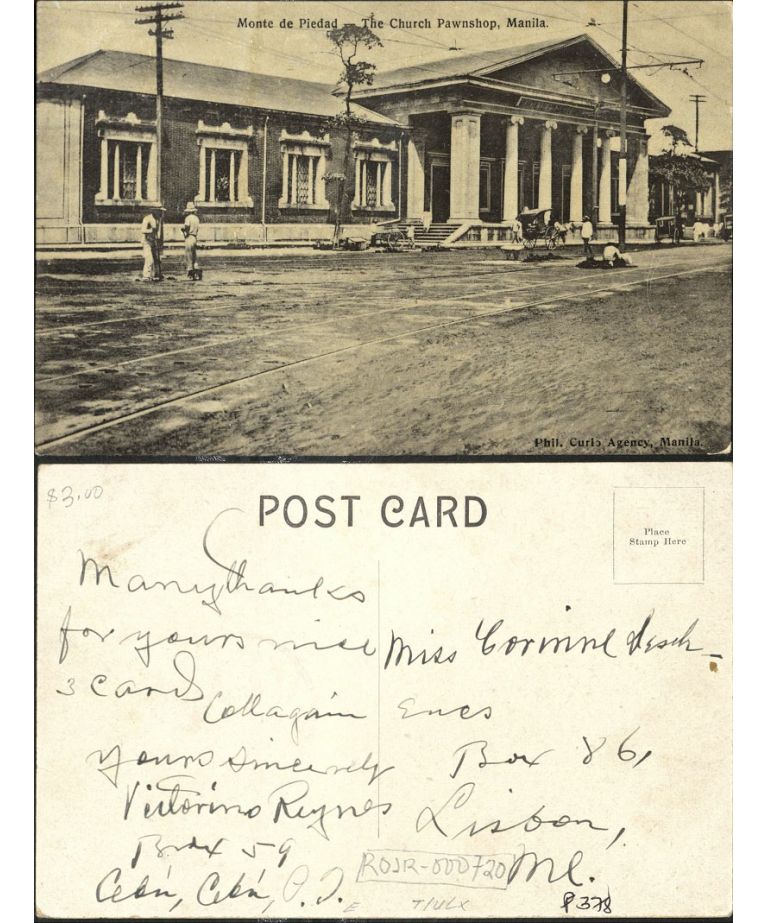 Monte de Piedad — The Church Pawnshop, Manila.
Phil. Curio Agency, Manila.
$3.00
POST CARD
Place
Stamp Here
Many thanks
for yours nice
3 cards
Call again
yours sincerely
Victorino Reynes
Box 59
Cebú, Cebú, P.I.
Miss Corinne Desch-
enes
Box 86,
Lisbon,
Me.
ROJR-000720
P378